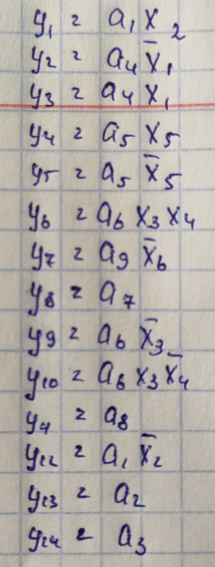 y₁ = a₁ x₂
y₂ = a₄ x̄₁
y₃ = a₄ x₁
y₄ = a₅ x₅
y₅ = a₅ x̄₅
y₆ = a₆ x₃ x₄
y₇ = a₉ x̄₆
y₈ = a₇
y₉ = a₆ x̄₃
y₁₀ = a₆ x₃ x̄₄
y₁₁ = a₈
y₁₂ = a₁ x̄₂
y₁₃ = a₂
y₁₄ = a₃